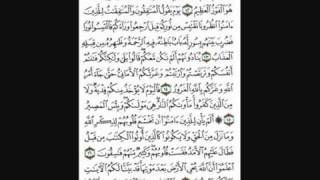 هُوَ ٱلْفَوْزُ ٱلْعَظِيمُ ١٢ يَوْمَ يَقُولُ ٱلْمُنَٰفِقُونَ وَٱلْمُنَٰفِقَٰتُ لِلَّذِينَ
ءَامَنُوا۟ ٱنظُرُونَا نَقْتَبِسْ مِن نُّورِكُمْ قِيلَ ٱرْجِعُوا۟ وَرَآءَكُمْ فَٱلْتَمِسُوا۟ نُورًا
فَضُرِبَ بَيْنَهُم بِسُورٍ لَّهُۥ بَابٌۢ بَاطِنُهُۥ فِيهِ ٱلرَّحْمَةُ وَظَٰهِرُهُۥ مِن قِبَلِهِ
ٱلْعَذَابُ ١٣ يُنَادُونَهُمْ أَلَمْ نَكُن مَّعَكُمْ قَالُوا۟ بَلَىٰ وَلَٰكِنَّكُمْ فَتَنتُمْ
أَنفُسَكُمْ وَتَرَبَّصْتُمْ وَٱرْتَبْتُمْ وَغَرَّتْكُمُ ٱلْأَمَانِىُّ حَتَّىٰ جَآءَ أَمْرُ
ٱللَّهِ وَغَرَّكُم بِٱللَّهِ ٱلْغَرُورُ ١٤ فَٱلْيَوْمَ لَا يُؤْخَذُ مِنكُمْ فِدْيَةٌ وَلَا
مِنَ ٱلَّذِينَ كَفَرُوا۟ مَأْوَىٰكُمُ ٱلنَّارُ هِىَ مَوْلَىٰكُمْ وَبِئْسَ ٱلْمَصِيرُ
١٥ أَلَمْ يَأْنِ لِلَّذِينَ ءَامَنُوٓا۟ أَن تَخْشَعَ قُلُوبُهُمْ لِذِكْرِ ٱللَّهِ
وَمَا نَزَلَ مِنَ ٱلْحَقِّ وَلَا يَكُونُوا۟ كَٱلَّذِينَ أُوتُوا۟ ٱلْكِتَٰبَ مِن قَبْلُ
فَطَالَ عَلَيْهِمُ ٱلْأَمَدُ فَقَسَتْ قُلُوبُهُمْ وَكَثِيرٌ مِّنْهُمْ فَٰسِقُونَ ١٦
ٱعْلَمُوٓا۟ أَنَّ ٱللَّهَ يُحْىِ ٱلْأَرْضَ بَعْدَ مَوْتِهَا قَدْ بَيَّنَّا لَكُمُ ٱلْءَايَٰتِ